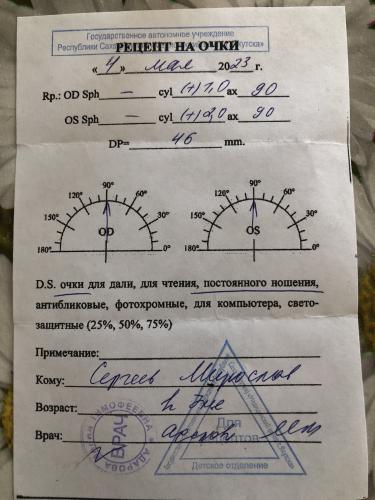 Государственное автономное учреждение
Республики Саха
РЕЦЕПТ НА ОЧКИ
« 4 » мая 2023 г.
Rp.: OD Sph — cyl (+)1,0 ax 90
OS Sph — cyl (+)2,0 ax 90
DP= 46 mm.
90° 90°
120° 60° 120° 60°
150° 30° 150° 30°
OD OS
180° 0° 180° 0°
D.S. очки для дали, для чтения, постоянного ношения,
антибликовые, фотохромные, для компьютера, свето-
защитные (25%, 50%, 75%)
Примечание:
Кому: Сергеев Мирослав
Возраст:
Для
Врач:
ВРАЧ
Детское отделение